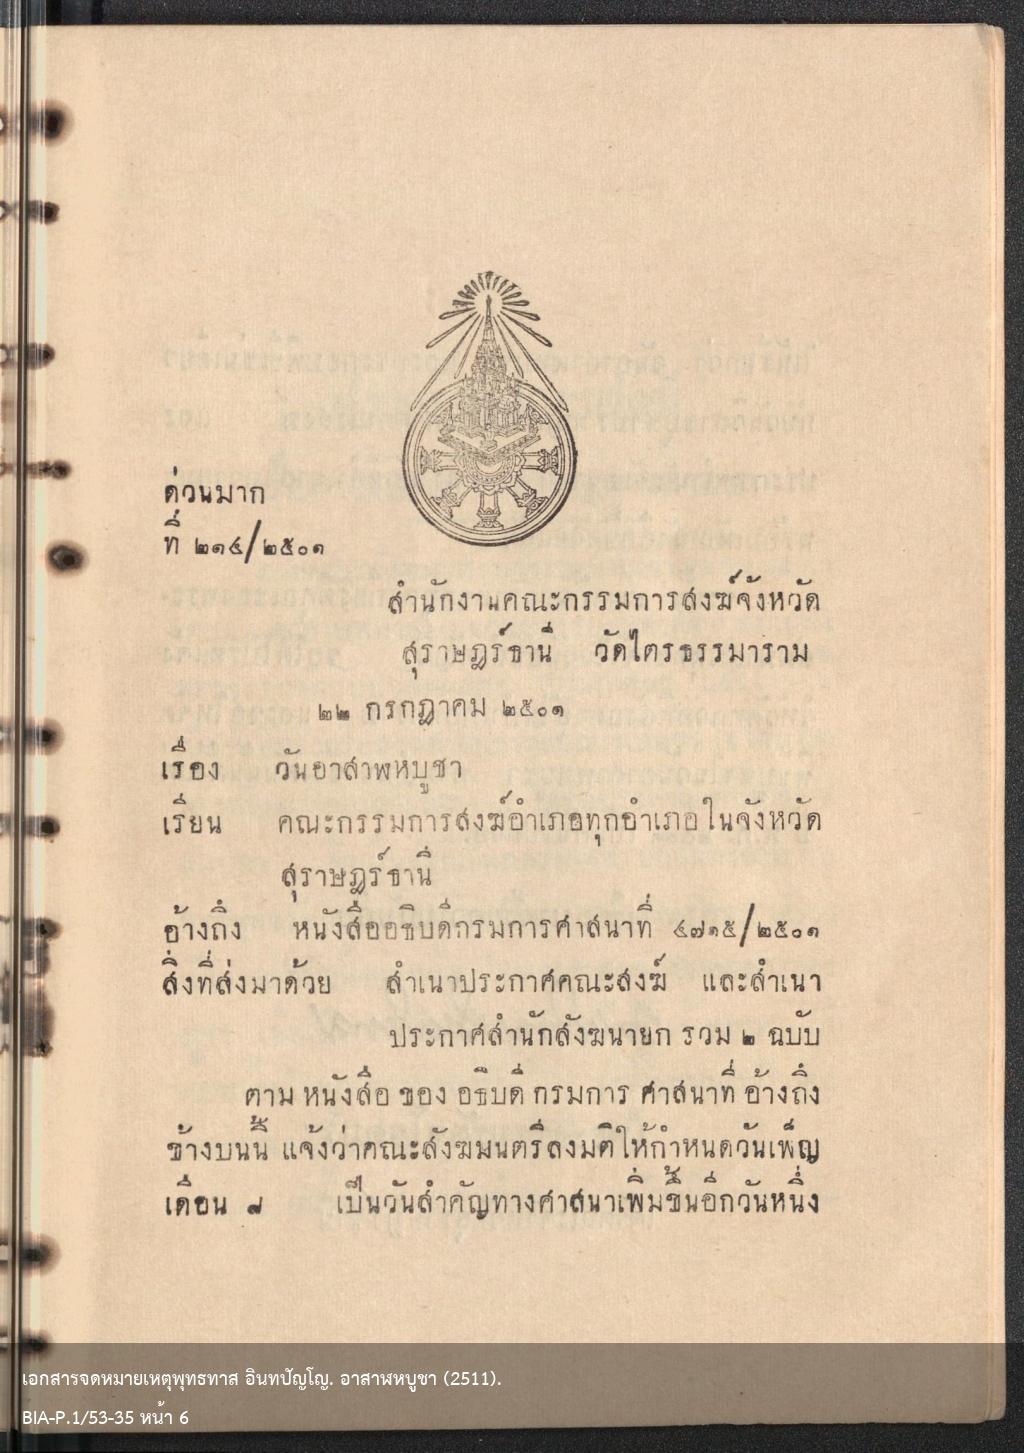 ด่วนมาก
ที่ ๒๑๔/๒๕๐๑
สำนักงานคณะกรรมการสงฆ์จังหวัด
สุราษฎร์ธานี วัดไตรธรรมาราม
๒๒ กรกฎาคม ๒๕๐๑
เรื่อง วันอาสาฬหบูชา
เรียน คณะกรรมการสงฆ์อำเภอทุกอำเภอในจังหวัด
สุราษฎร์ธานี
อ้างถึง หนังสืออธิบดีกรมการศาสนาที่ ๔๗๑๕/๒๕๐๑
สิ่งที่ส่งมาด้วย สำเนาประกาศคณะสงฆ์ และสำเนา
ประกาศสำนักสังฆนายก รวม ๒ ฉบับ
ตาม หนังสือ ของ อธิบดี กรมการ ศาสนาที่ อ้างถึง
ข้างบนนี้ แจ้งว่าคณะสังฆมนตรีลงมติให้กำหนดวันเพ็ญ
เดือน ๘ เป็นวันสำคัญทางศาสนาเพิ่มขึ้นอีกวันหนึ่ง
เอกสารจดหมายเหตุพุทธทาส อินทปัญโญ. อาสาฬหบูชา (2511).
BIA-P.1/53-35 หน้า 6